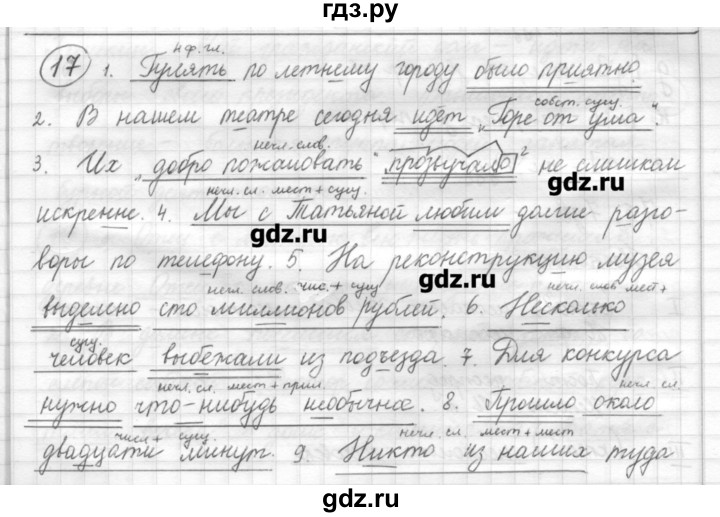 гдз.ру
н.ф.гл.
17 1. Гулять по летнему городу было приятно.
собст. сущ.
2. В нашем театре сегодня идёт "Горе от ума".
нечл. слов.
3. Их "добро пожаловать" прозвучало не слишком
gdz.ru
нечл. сл. мест + сущ.
искренне. 4. Мы с Татьяной любили долгие разго-
gdz.ru
воры по телефону. 5. На реконструкцию музея
gdz.ru
нечл. слов. чис. + сущ. нечл. слов мест+
выделено сто миллионов рублей. 6. Несколько
сущ.
человек выбежали из подъезда. 7. Для конкурса
нечл. сл. мест + прил. нечл. сл.
нужно что-нибудь необычное. 8. Прошло около
числ + сущ. нечл. сл. мест + мест
двадцати минут. 9. Никто из наших туда
gdz.ru